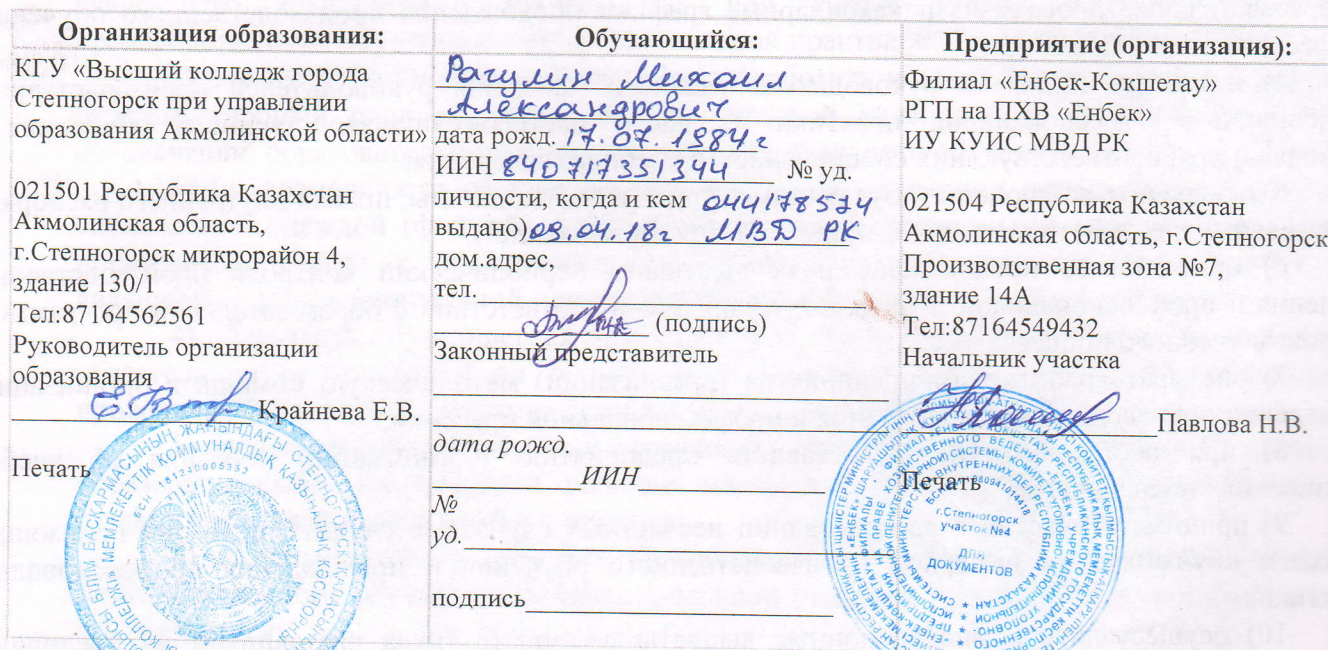 Организация образования:
КГУ «Высший колледж города
Степногорск при управлении
образования Акмолинской области»
021501 Республика Казахстан
Акмолинская область,
г.Степногорск микрорайон 4,
здание 130/1
Тел:87164562561
Руководитель организации
образования
Крайнева Е.В.
Печать
Обучающийся:
Рагулин Михаил
Александрович
дата рожд. 17.07.1984г
ИИН 840717351344 № уд.
личности, когда и кем 044178524
выдано) 09.04.18г МВД РК
дом.адрес,
тел.
(подпись)
Законный представитель
дата рожд.
ИИН
№
уд.
подпись
Предприятие (организация):
Филиал «Енбек-Кокшетау»
РГП на ПХВ «Енбек»
ИУ КУИС МВД РК
021504 Республика Казахстан
Акмолинская область, г.Степногорск
Производственная зона №7,
здание 14А
Тел:87164549432
Начальник участка
Павлова Н.В.
Печать
г.Степногорск
участок №4
ДЛЯ
ДОКУМЕНТОВ